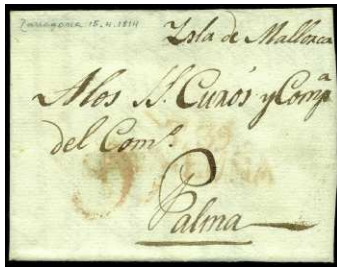 Zaragoza 15.4.1814
Isla de Mallorca
A los S.ˢ Curós y Comp.ª
del Com.º
Palma